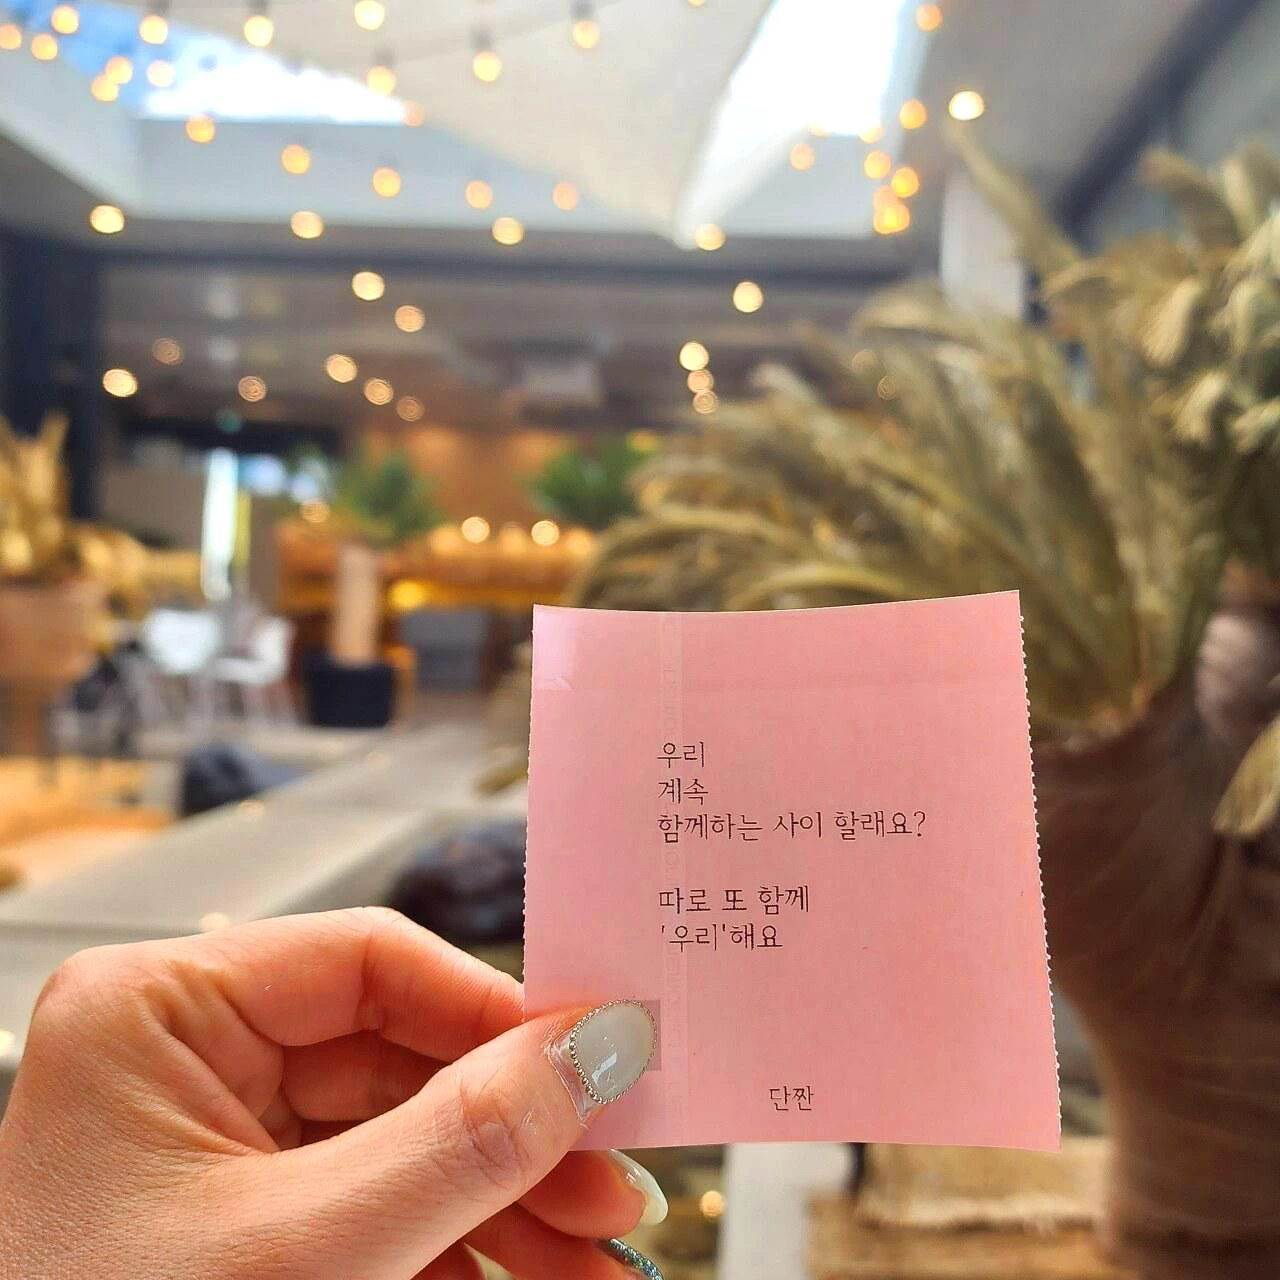 우리
계속
함께하는 사이 할래요?
따로 또 함께
'우리'해요
단짠